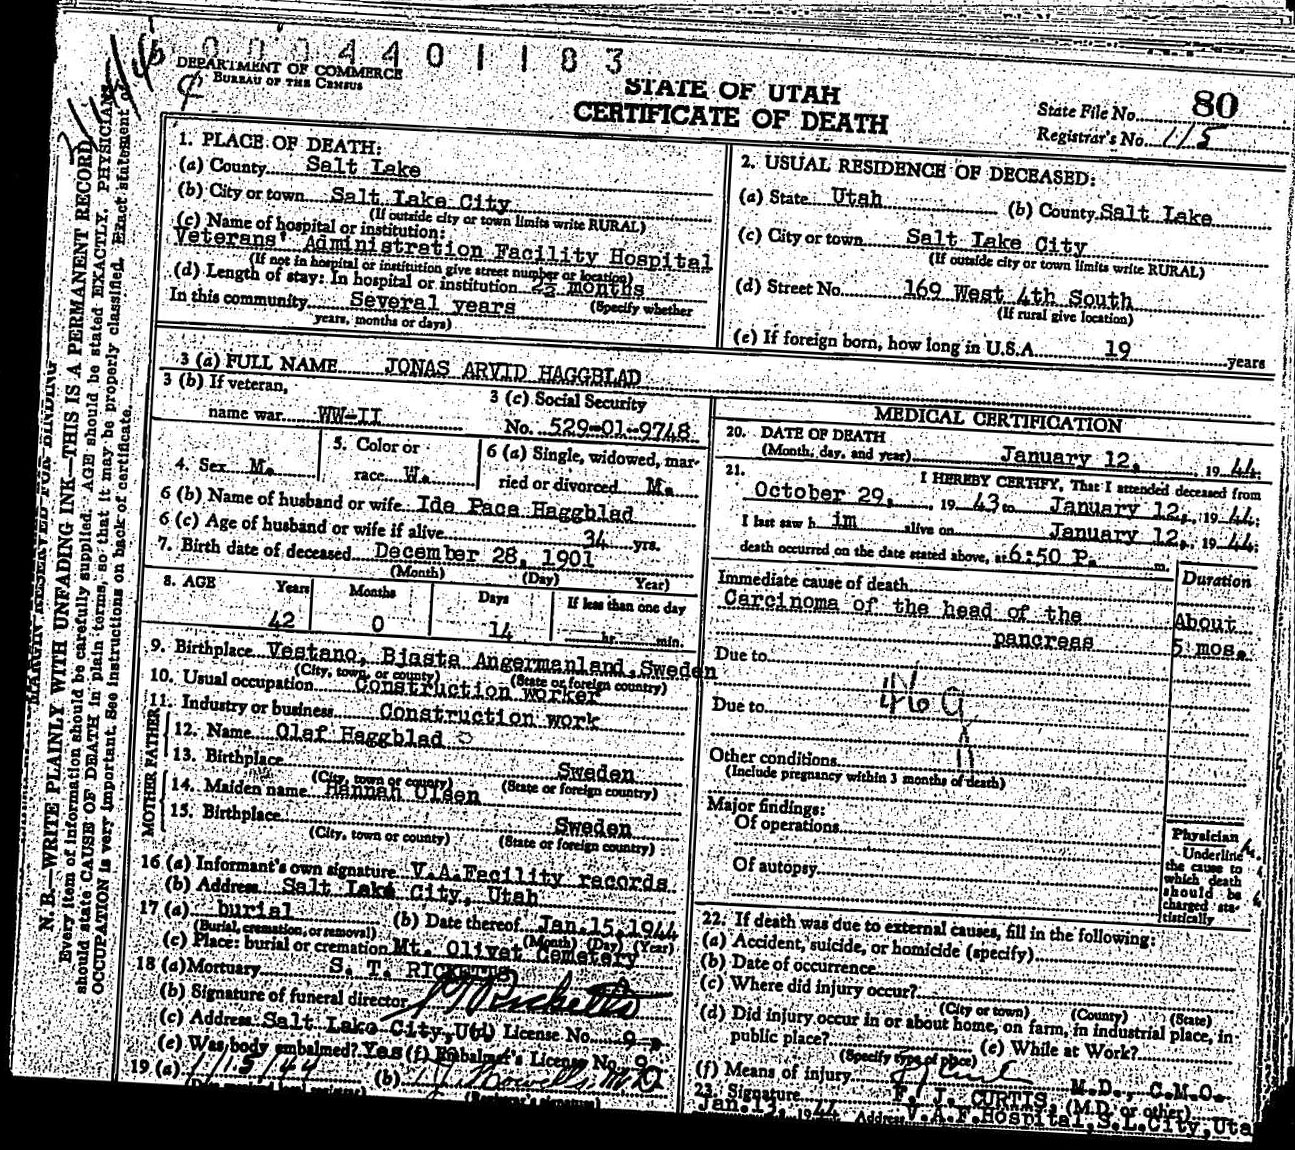 0004401183
DEPARTMENT OF COMMERCE
BUREAU OF THE CENSUS
STATE OF UTAH
CERTIFICATE OF DEATH
State File No. 80
Registrar's No. 115
N. B.—WRITE PLAINLY WITH UNFADING INK—THIS IS A PERMANENT RECORD
Every item of information should be carefully supplied. AGE should be stated EXACTLY. PHYSICIANS
should state CAUSE OF DEATH in plain terms, so that it may be properly classified. Exact statement of
OCCUPATION is very important. See instructions on back of certificate.
1. PLACE OF DEATH:
(a) County Salt Lake
(b) City or town Salt Lake City
(If outside city or town limits write RURAL)
(c) Name of hospital or institution:
Veterans' Administration Facility Hospital
(If not in hospital or institution give street number or location)
(d) Length of stay: In hospital or institution 2½ months
In this community Several years (Specify whether
years, months or days)
2. USUAL RESIDENCE OF DECEASED:
(a) State Utah (b) County Salt Lake
(c) City or town Salt Lake City
(If outside city or town limits write RURAL)
(d) Street No. 169 West 4th South
(If rural give location)
(e) If foreign born, how long in U.S.A. 19 years
3 (a) FULL NAME JONAS ARVID HAGGBLAD
3 (b) If veteran,
name war WW-II
3 (c) Social Security
No. 529-01-9748
4. Sex M.
5. Color or
race W.
6 (a) Single, widowed, mar-
ried or divorced M.
6 (b) Name of husband or wife Ida Paca Haggblad
6 (c) Age of husband or wife if alive 34 yrs.
7. Birth date of deceased December 28, 1901
(Month) (Day) Year)
8. AGE Years Months Days If less than one day
42 0 14 hr. min.
9. Birthplace Vestano, Bjasta Angermanland, Sweden
(City, town, or county) (State or foreign country)
10. Usual occupation Construction worker
11. Industry or business Construction work
FATHER
12. Name Olaf Haggblad
13. Birthplace Sweden
(City, town or county) (State or foreign country)
MOTHER
14. Maiden name Hannah Olsen
15. Birthplace Sweden
(City, town or county) (State or foreign country)
16 (a) Informant's own signature V.A.Facility records
(b) Address Salt Lake City, Utah
17 (a) burial (b) Date thereof Jan.15,1944
(Burial, cremation, or removal) (Month) (Day) (Year)
(c) Place: burial or cremation Mt. Olivet Cemetery
18 (a) Mortuary S. T. RICKETTS
(b) Signature of funeral director S T Ricketts
(c) Address Salt Lake City, Ut(d) License No. 9
(e) Was body embalmed? Yes (f) Embalmer's License No. 9
19 (a) 1/15/44 (b) M D
MEDICAL CERTIFICATION
20. DATE OF DEATH
(Month, day, and year) January 12, 1944
21. I HEREBY CERTIFY, That I attended deceased from
October 29, 1943 to January 12, 1944:
I last saw h im alive on January 12, 1944:
death occurred on the date stated above, at 6:50 P. m.
Immediate cause of death Duration
Carcinoma of the head of the About
pancreas 5 mos.
Due to
Due to 46 g
Other conditions
(Include pregnancy within 3 months of death)
Major findings:
Of operations
Of autopsy
Physician
Underline
the cause to
which death
should be
charged sta-
tistically
22. If death was due to external causes, fill in the following:
(a) Accident, suicide, or homicide (specify)
(b) Date of occurrence
(c) Where did injury occur?
(City or town) (County) (State)
(d) Did injury occur in or about home, on farm, in industrial place, in
public place? (e) While at Work?
(Specify type of place)
(f) Means of injury
23. Signature F. J. CURTIS, M.D., C.M.O.
(M.D. or other)
Jan.13, 1944 Address V.A.F.Hospital,S.L.City,Uta